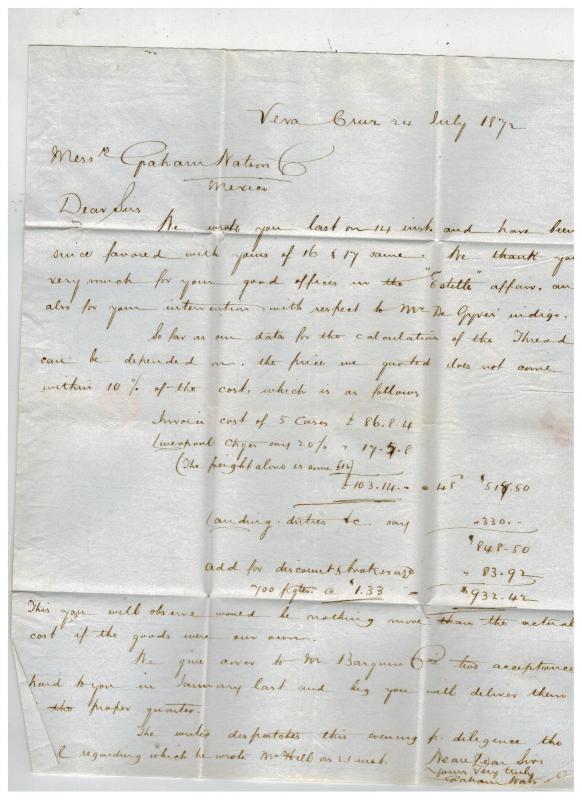 Vera Cruz 24 July 1872
Messrs Graham Watson Co
Mexico
Dear Sirs
We wrote you last on 14 inst. and have been
since favored with yours of 16 & 17 same. We thank you
very much for your good offices in the "Estelle" affair. an
also for your intervention with respect to Mr De Gyves' indigo.
So far as our data for the calculation of the Thread
can be depended on, the price we quoted does not come
within 10% of the cost, which is as follows
Invoice cost of 5 Cases £ 86.8.4
Liverpool Chges say 20% " 17.5.8
(The freight alone is some
£ 103.14.- @ 48d $518.50
Landing, duties &c. say " 330.-
$848.50
add for discount & brokerage " 83.92
700 @ $1.33 = $932.42
This you will observe would be nothing more than the actual
cost if the goods were our own.
We give cover to Mr. Co's two acceptance
to you in January last and beg you will deliver them
in the proper quarter.
The writer despatches this evening p diligence the
regarding which he wrote Mr Hill on 21 inst.
We are Dear Sirs
Yours very truly
Graham Wats